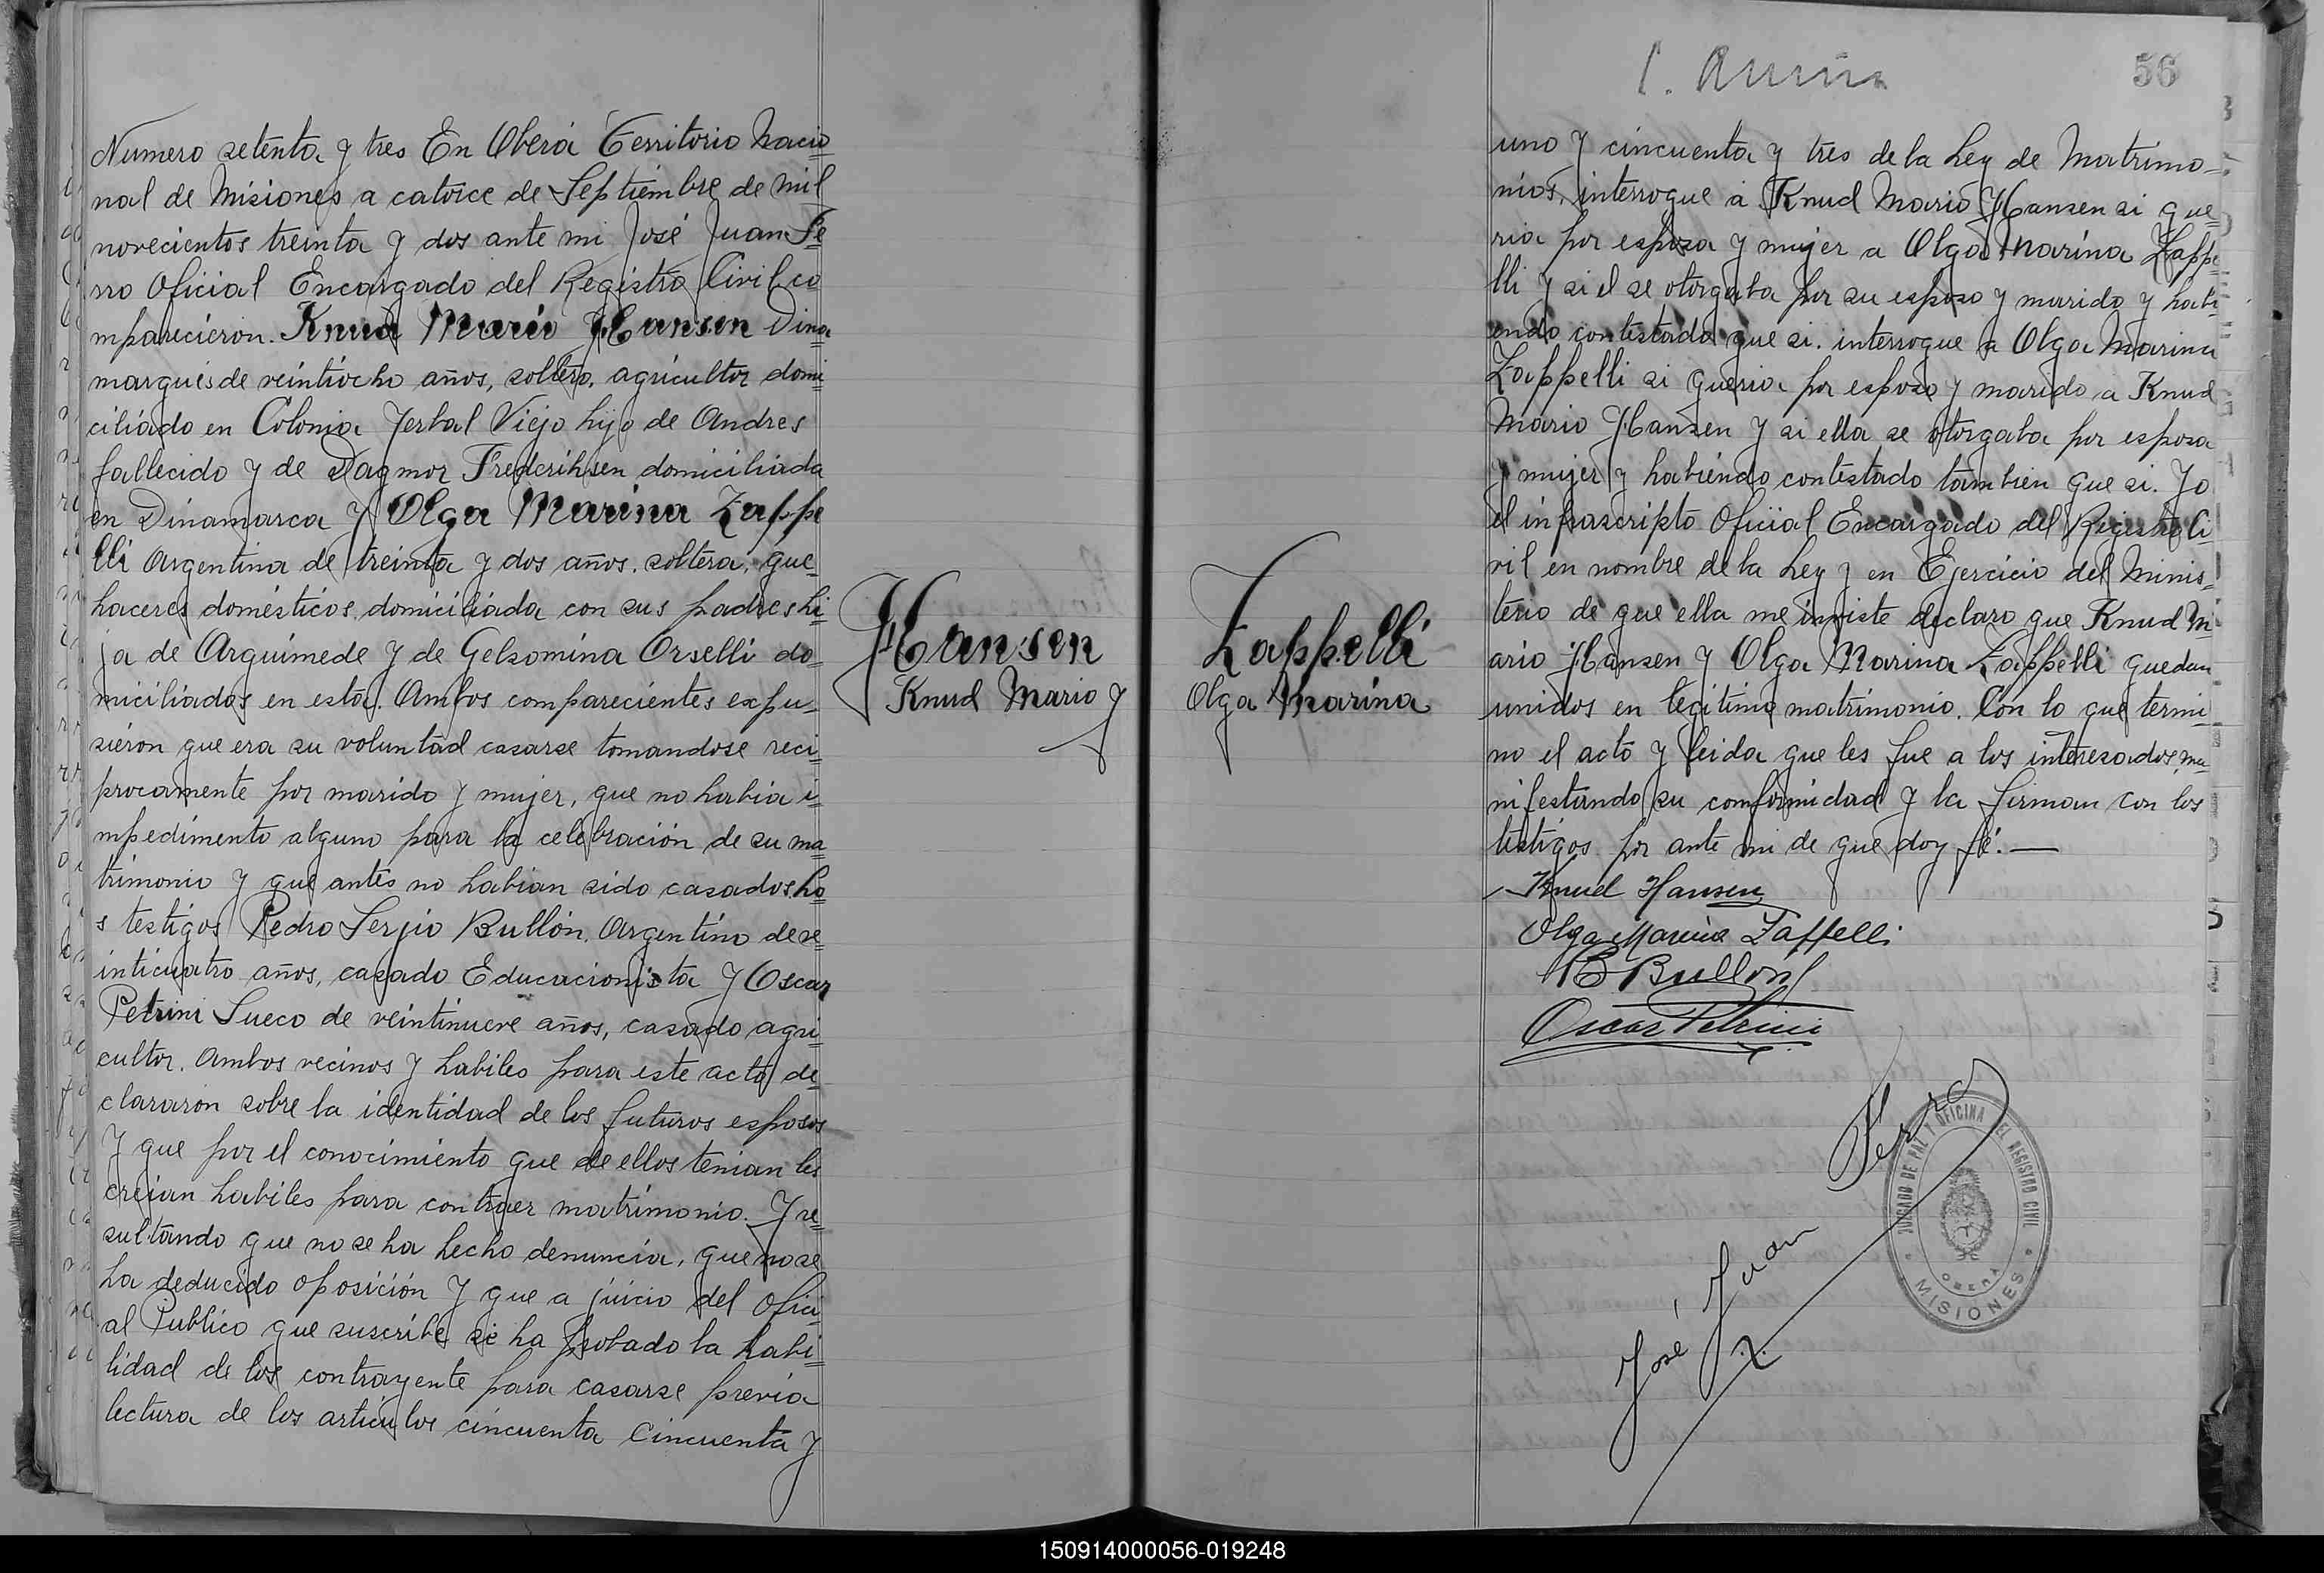 Numero setenta y tres En Oberá Territorio Nacio
nal de Misiones a catorce de Septiembre de mil
novecientos treinta y dos ante mi José Juan Fe
rro Oficial Encargado del Registro Civil co
mparecieron. Knud Mario Hansen Dina
marques de veintiocho años, soltero, agricultor domi
ciliado en Colonia Yerbal Viejo hijo de Andres
fallecido y de Dagmor Frederihsen domiciliada
en Dinamarca y Olga Marina Zappe
lli Argentina de treinta y dos años, soltera, que
haceres domésticos, domiciliada con sus padres hi
ja de Arquimede y de Gelsomina Orselli do
miciliados en esta. Ambos comparecientes expu
sieron que era su voluntad casarse tomandose reci
procamente por marido y mujer, que no habia i
mpedimento alguno para la celebración de su ma
trimonio y que antes no habian sido casados. Lo
s testigos Pedro Serjio Bullón, Argentino de ve
inticuatro años, casado Educacionista y Oscar
Petrini Sueco de veintinueve años, casado agri
cultor. Ambos vecinos y habiles para este acto de
clararon sobre la identidad de los futuros esposos
y que por el conocimiento que de ellos tenian les
creian habiles para contraer matrimonio. Y re
sultando que no se ha hecho denuncia, que no se
ha deducido oposición y que a juicio del Ofici
al Publico que suscribe se ha probado la habi
lidad de los contrayente para casarse previa
lectura de los articulos cincuenta cincuenta y
Hansen
Knud Mario y
Zappelli
Olga Marina
56
uno y cincuenta y tres de la Ley de Matrimo
nios, interrogue a Knud Mario Hansen si que
ria por esposa y mujer a Olga Marina Zappe
lli y si el se otorgaba por su esposo y marido y habi
endo contestado que si. interrogue a Olga Marina
Zappelli si queria por esposo y marido a Knud
Mario Hansen y si ella se otorgaba por esposa
y mujer y habiendo contestado tambien que si. Yo
el infrascripto Oficial Encargado del Registro Ci
vil en nombre de la Ley y en Ejercicio del Minis
terio de que ella me inviste declaro que Knud M
ario Hansen y Olga Marina Zappelli quedan
unidos en legitimo matrimonio. Con lo que termi
no el acto y leida que les fue a los interesados, ma
nifestando su conformidad y la firman con los
testigos por ante mi de que doy fé.—
Knud Hansen
Olga Marina Zappelli
Bullon
Oscar Petrini
José Juan Ferro
JUZGADO DE PAZ Y OFICINA DEL REGISTRO CIVIL
OBERA
MISIONES
150914000056-019248